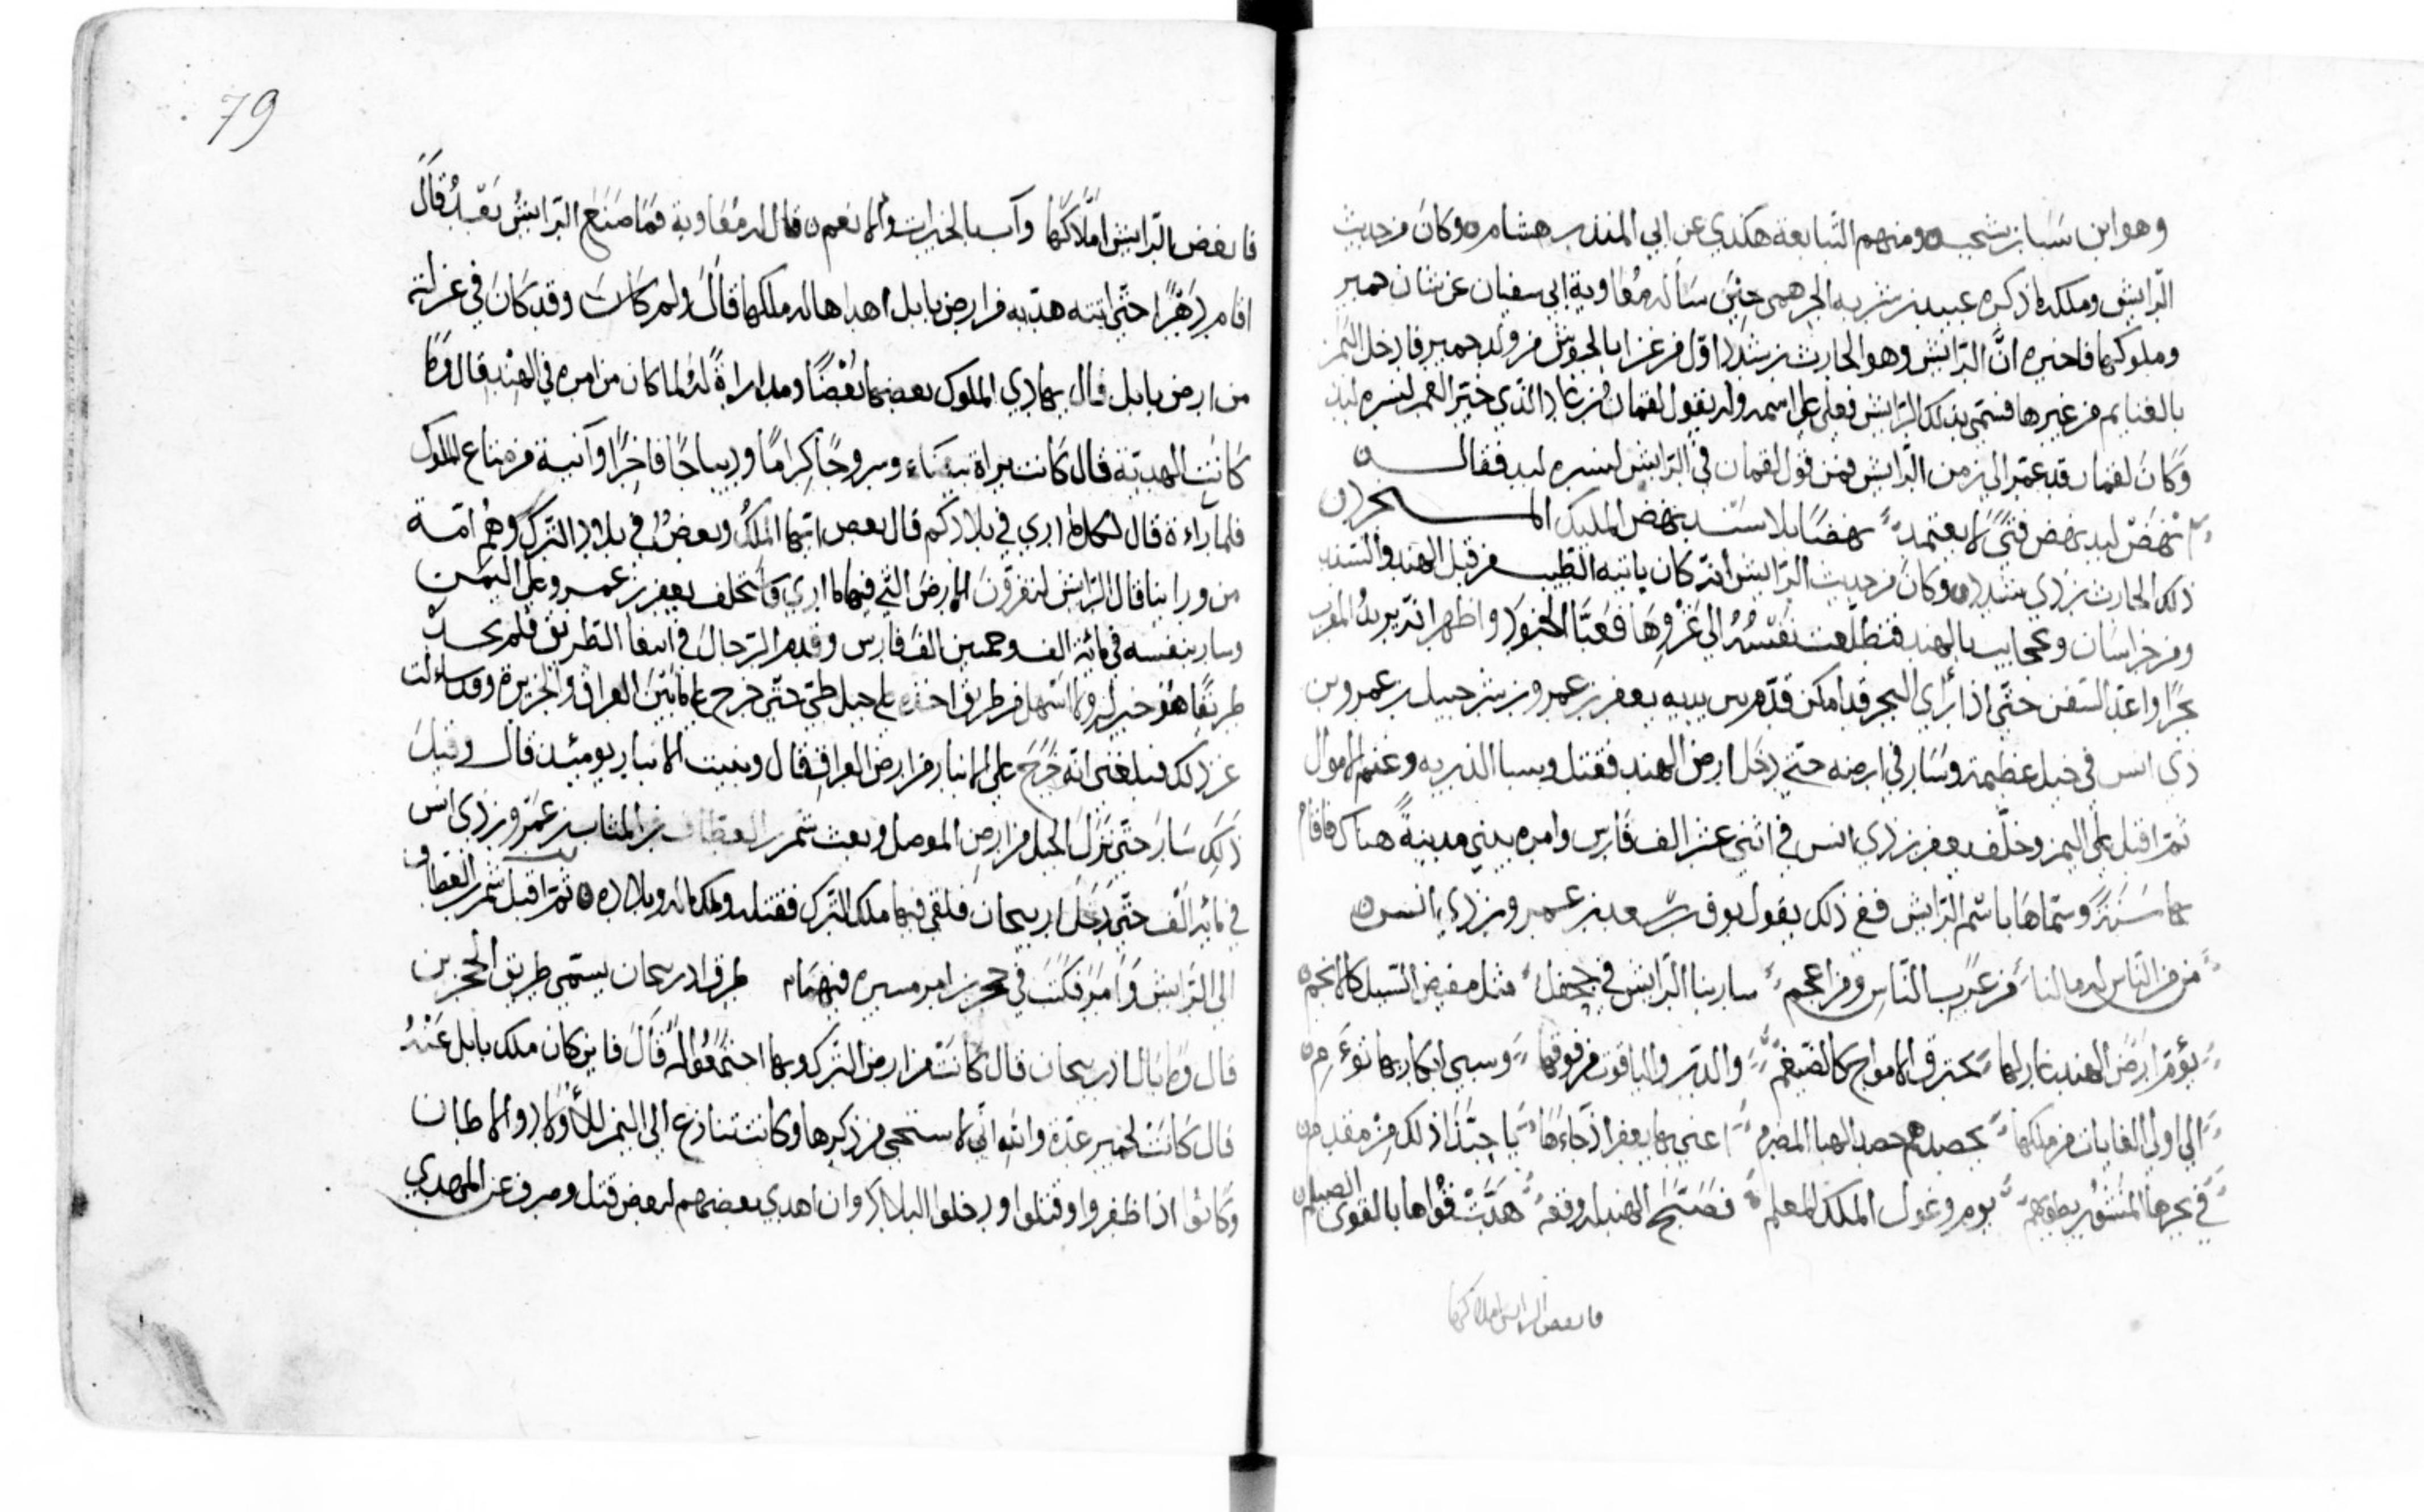 وهو ابن سبا بن يشجب ومنهم التبابعة هكذي عن ابي المنذر هشام وكان من حديث
الرايش وملكه ما ذكره عبيد بن شريه الجرهمي حين سأله معاوية ابي سفيان عن شان حمير
وملوكها فاخبره انّ الرايش وهو الحارث بن شدد اول من غزا بالجيوش من ولد حمير فادخل اليمن
بالغنايم من غيرها فسمي بذلك الرايش فغلب على اسمه وله يقول لقمان بن عاد الذي خير العمر لنسره لبد
وكان لقمان قد عمّر الى زمن الرايش فمن قول لقمان في الرايش لنسره لبد فقال
انهض لبد نهض فتى لا يعتمد نهضا بلا سند نهض المليك
ذلك الحارث بن ذي شدد وكان من حديث الرايش انه كان ياتيه الطيب من قبل الهند والسند
ومن خراسان وعجايب الهند فتطلعت نفسه الى غزوها فعبّا الجنود واظهر انه يريد المغرب
بحرا واعد السفن حتى اذا راى البحر قد امكن قدم بين يديه يعفر بن عمرو بن شرحبيل بن عمرو بن
ذي انس في خيل عظيمة وسار في ارضه حتى دخل ارض الهند فقتل وسبا الذريه وغنم الاموال
ثم اقبل الى اليمن وخلّف يعفر بن ذي انس في اثني عشر الف فارس وامره يبني مدينة هناك فاقام
بها سنة وسماها باسم الرايش ففي ذلك يقول نوف بن سعد بن عمرو بن ذي انس
من من الناس له ما لنا من عرب الناس ومن اعجم سار بنا الرايش في جحفل مثل مفيض السيل كالانجم
يؤم ارض الهند غاز لها تخترق الامواج كالضيغم والدر والياقوت من فوقها وسبي ابكار بها توءم
الى اولي الغايات من ملكها اعني بها يعفر اذ جاءها يا حبذا ذلك من مقدم
في بحرها المنشور يوم وغول الملك المعلم فصبّح الهند له وقعة هدّت قواها بالقوى الصيلم
فانفض الرايش املاكها
79
فانفض الرايش املاكها وآب بالخيرات والانعم قال له معاوية فما صنع الرايش بعد قال
اقام دهرا حتى اتته هديه من ارض بابل اهداها له ملكها قال ولم كانت وقد كان في عزلته
من ارض بابل قال يهادي الملوك بعضها بعضا ومداراة له لما كان من امره في الهند قال وما
كانت الهدية قال كانت بزاة بيضاء وسروجا كراما وديباجا فاخرا وآنية من متاع الملوك
فلما راءه قال اكلما ارى في بلادكم قال بعض ايها الملك وبعض في بلاد الترك وهم امّة
من ورائنا قال الرايش لنغزون الارض التي فيها ما ارى فاستخلف يعفر بن عمرو على اليمن
وسار بنفسه في مائة الف وخمسين الف فارس وقدم الرجال في ابتغا الطريق فلم يجد
طريقا هو خير له ولا اسهل من طريق اخذه على جبل طي حتى خرج على ما بين العراق والجزيرة وقد سالت
عن ذلك فبلغني انه خرج على الانبار من ارض العراق قال وبنيت الانبار يومئذ قال وقيل
ذلك سار حتى نزل الجبل من ارض الموصل وبعث شمر العطاف بن المنتاب بن عمرو بن ذي انس
في مائة الف حتى دخل اذربيجان فلقي فيها ملك الترك فقتله وملك ماله وبلاده ثم اقبل شمر العطاف
الى الرايش وامر فكتب في حجرين امر مسيره فيهما طرق اذربيجان يسمى طريق الحجرين
قال وما بال اذربيجان قال كانت من ارض الترك وبها اجتمعوا له قال فاين كان ملك بابل عنه
قال كانت لحمير عدة واني لاستحي من ذكرها وكانت تنازع الى اليمن للاولاد والاوطان
وكانوا اذا ظفروا وقتلوا ودخلوا البلاد وان اهدى بعضهم لبعض قبل وصرف عن المهدي